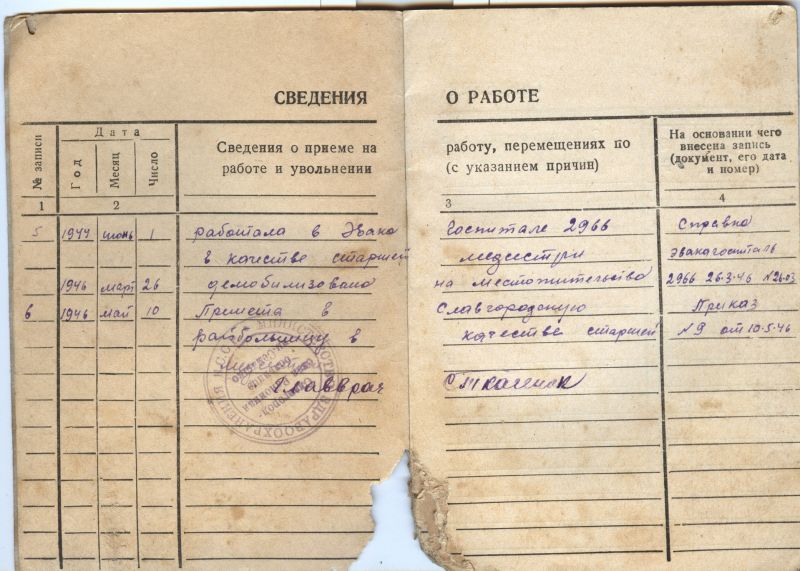 СВЕДЕНИЯ О РАБОТЕ
№ записи
Дата
Год
Месяц
Число
Сведения о приеме на работу, перемещениях по
работе и увольнении (с указанием причин)
На основании чего
внесена запись
(документ, его дата
и номер)
1 2 3 4
5 1944 июнь 1 работала в Эвако Госпитале 2966 Справка
в качестве старшей медсестры эвакагоспиталь
1946 март 26 демобилизована на местожительства 2966 26-3-46 №26-03
6 1946 май 10 Принета в Славгородскую Приказ
райбольницу в качестве старшей №9 от 10.5.46
Главврач
МИНИСТЕРСТВО ЗДРАВООХРАНЕНИЯ